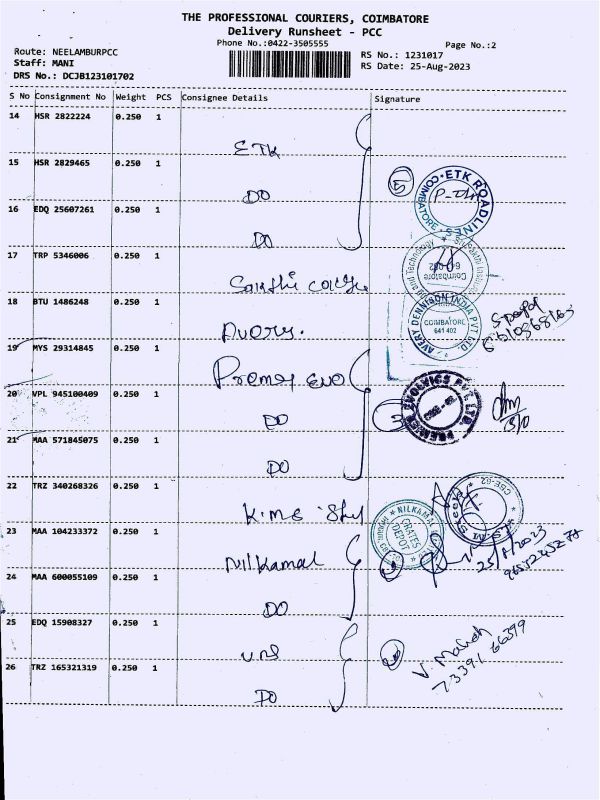 THE PROFESSIONAL COURIERS, COIMBATORE
Delivery Runsheet - PCC
Phone No.:0422-3505555
Page No.:2
Route: NEELAMBURPCC
RS No.: 1231017
Staff: MANI
RS Date: 25-Aug-2023
DRS No.: DCJB123101702
S No Consignment No Weight PCS Consignee Details Signature
14 HSR 2822224 0.250 1 ETK
15 HSR 2829465 0.250 1 DO
16 EDQ 25607261 0.250 1 DO
ETK ROADLINES COIMBATORE
17 TRP 5346006 0.250 1
Coimbatore
18 BTU 1486248 0.250 1
AVERY DENNISON INDIA PVT LTD.
COIMBATORE
641 402
19 MYS 29314845 0.250 1
20 VPL 945100409 0.250 1 DO
PREMIER EVOLVICS PVT LTD.
21 MAA 571845075 0.250 1 DO
22 TRZ 340268326 0.250 1
CBE-62
23 MAA 104233372 0.250 1 Nilkamal
NILKAMAL
CRATES
DEPOT
24 MAA 600055109 0.250 1 DO
25 EDQ 15908327 0.250 1
26 TRZ 165321319 0.250 1 DO
73391 66399